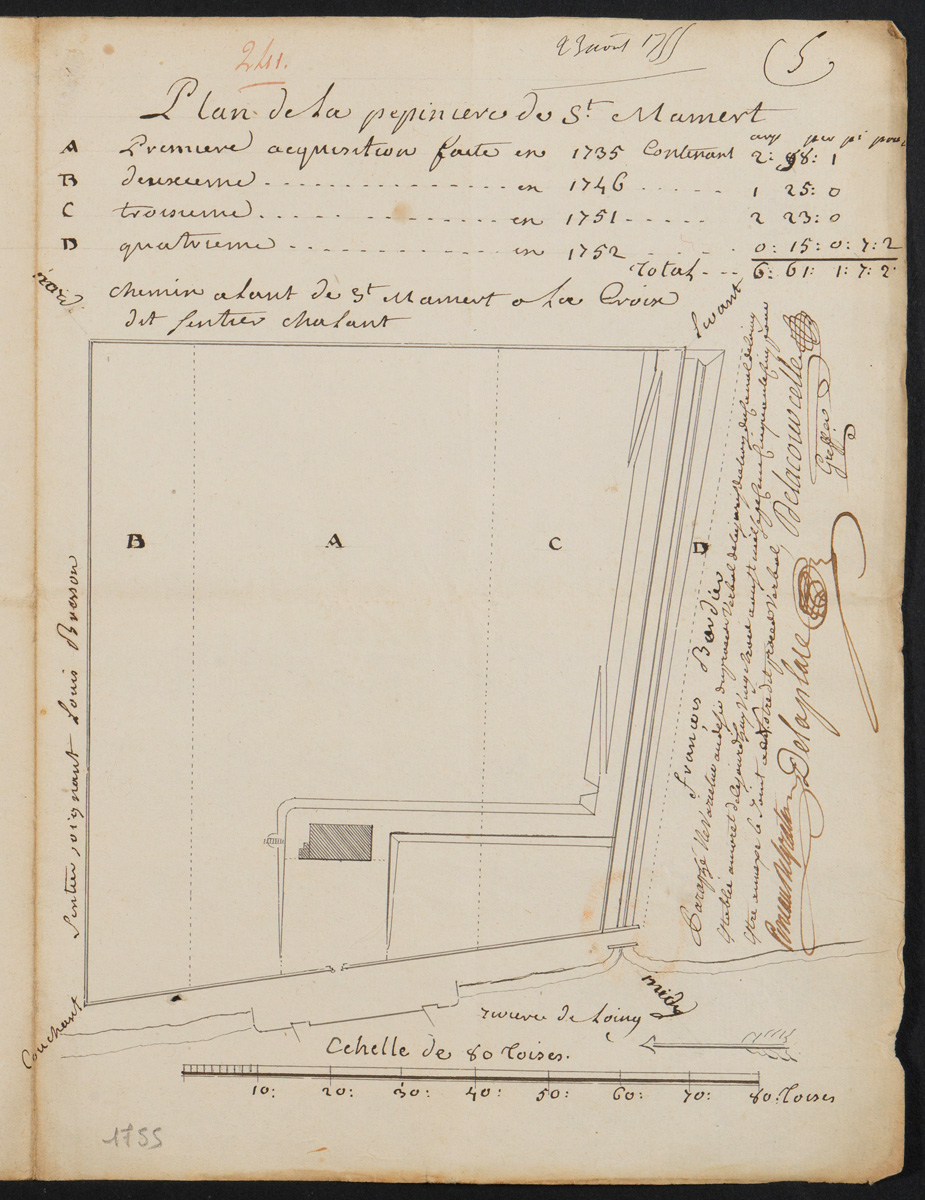 241.
23 aout 1755
5
Plan de la pepiniere de St Mamert
arp per pi pouc
A Premiere acquisition faite en 1735 Contenant 2: 98: 1
B deuxieme en 1746 1 25: 0
C troisieme en 1751 2 23: 0
D quatrieme en 1752 0: 15: 0: 7: 2
Total 6: 61: 1: 7: 2
chemin alant de St Mamert a la Croix
dit sentier chalant
Levant
B
A
C
D
Sentier joignant Louis Brosson
François Bardier
Paraphé Ne Varietur au desir du procès Verbal
Delacourcelle
Greffier
Delaplace
Couchant
midy
riviere de Loing
Echelle de 80 Toises.
10: 20: 30: 40: 50: 60: 70: 80: Toises
1755